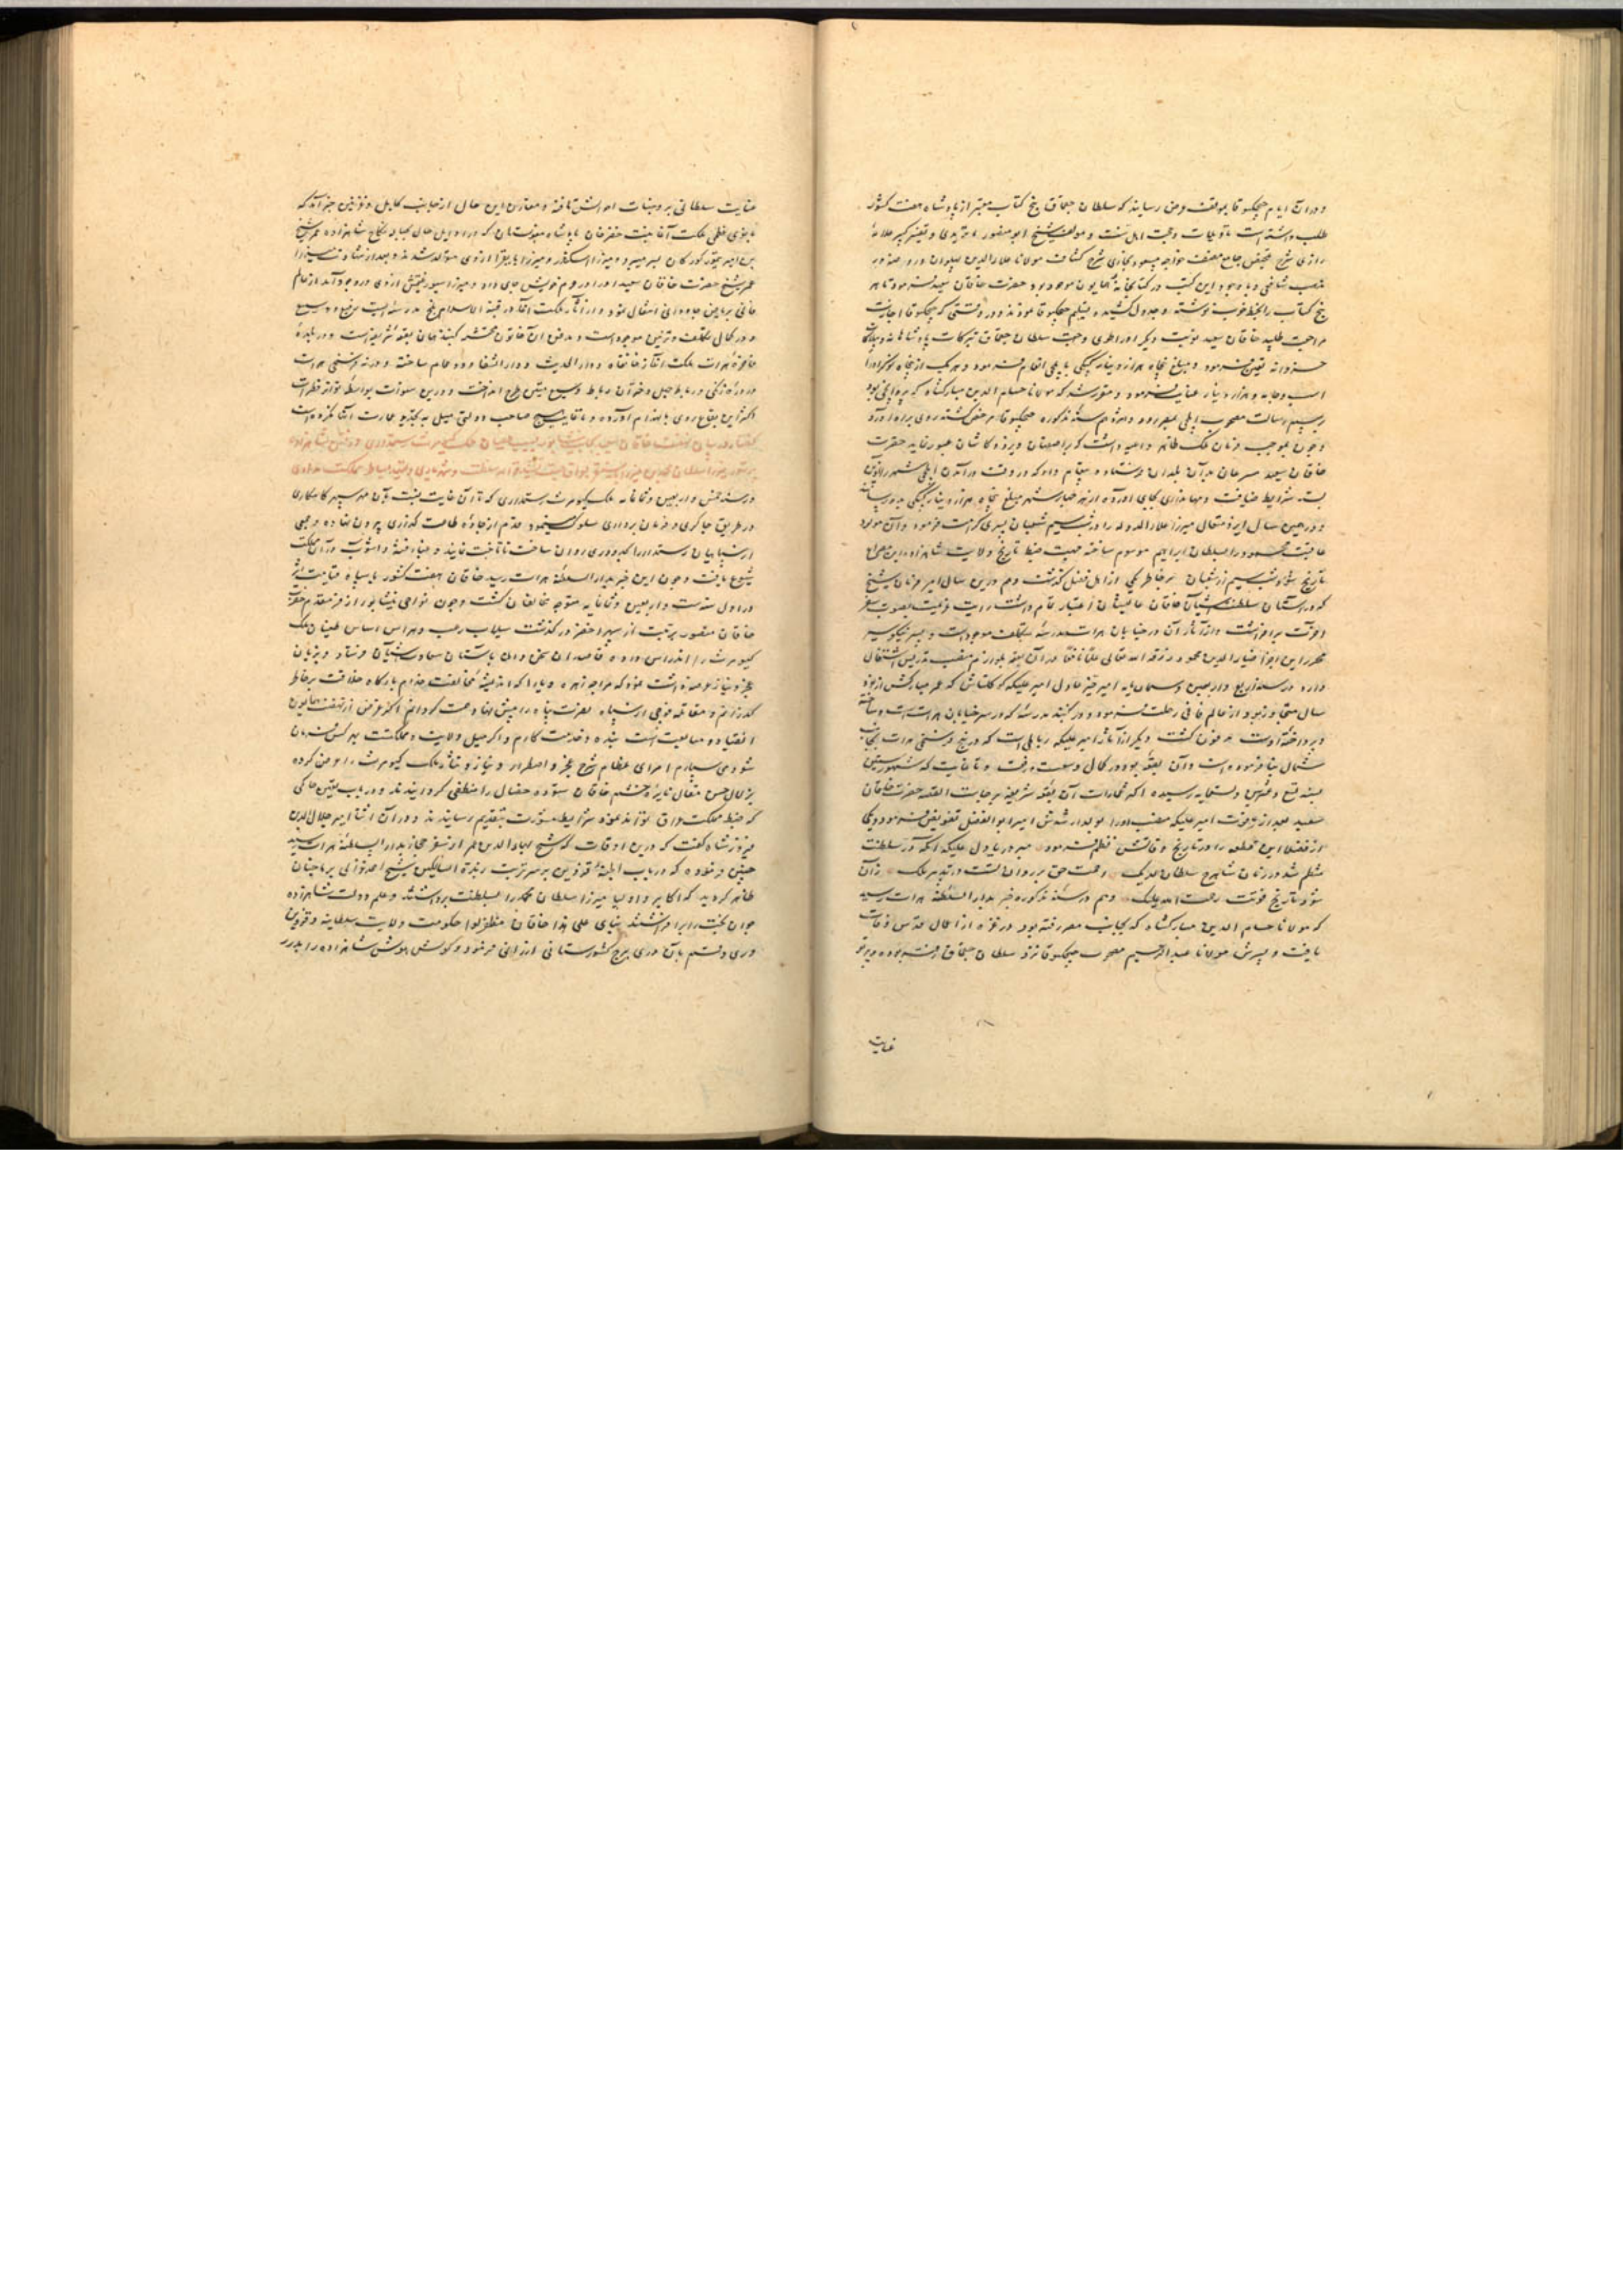 و در آن ایام جیجکتوقا بموقف عرض رسانید که سلطان جقماق پنج کتاب معتبر از پادشاه هفت کشور
طلب داشته است تاویلات و حجت اهل سنت و مولف شیخ ابو منصور ماتریدی و تفسیر کبیر علامهٔ
رازی شرح تلخیص جامع مصنف خواجه مسعود بخاری شرح کشاف مولانا علاء الدین پهلوان و روضه در
مذهب شافعی و با وجود این کتب در کتابخانهٔ همایون موجود بود حضرت خاقان سعید فرمود تا هر
پنج کتاب را بخط خوب نوشته و جدول کشیده تسلیم جیجکتوقا نمودند و در وقتی که جیجکتوقا اجازت
مراجعت طلبید خاقان سعید نوبت دیگر او را طوی و جهت سلطان جقماق تبرکات پادشاهانه و بیلاکات
خسروانه تعیین فرمود و مبلغ پنجاه هزار دینار کپکی بایلچی انعام فرمود و هر یک از پنجاه نوکر او را
اسب و جامه و هزار دینار عنایت فرمود و مقرر شد که مولانا حسام الدین مبارکشاه که
برسم رسالت مصحوب ایلچی بمصر رود و هم در سنهٔ مذکوره جیجکتوقا مرخص گشته روی براه آورد
و چون بموجب فرمان ملک ظاهر داعیه داشت که بر اصفهان و یزد و کاشان عبور نماید حضرت
خاقان سعید مسرعان بدان بلدان فرستاد و پیغام داد که در وقت در آمدن ایلچی شهر را آذین
بسته شرایط ضیافت و مهمانداری بجای آورده از هر شهر مبلغ پنجاه هزار دینار کپکی بدو رسانند
و در همین سال ایزد متعال میرزا علاء الدوله را در شب سیم شعبان پسری کرامت فرمود و آن مولود
عاقبت محمود را سلطان ابراهیم موسوم ساخته جهت ضبط تاریخ ولایت شاهزاده این مصراع
تاریخ شد شب سیم از شعبان بر خاطر یکی از اهل فضل گذشت و هم درین سال امیر فرمان شیخ
که در آستان سلطنت آشیان خاقان عالیشان اعتبار تمام داشت رایت عزیمت بصوب سفر
آخرت برافراشت و از آثار آن در خیابان هرات مدرسهٔ بتکلف موجودست و پسر نیکو سیر
محرر این اجزا ضیاء الدین محمود رزقه الله تعالی علما نافعا در آن بقعه بلوازم منصب تدریس اشتغال
دارد در سنهٔ اربع و اربعین و ثمانمایه امیر خیر عادل امیر علیکه کوکلتاش که عمر مبارکش از نود
سال متجاوز بود از عالم فانی رحلت فرمود و در گنبد مدرسهٔ که در سر خیابان هراتست و ساخته
و پرداخته اوست مدفون گشت و دیگر از آثار امیر علیکه رباطی است که در پنج فرسخی هرات بجانب
شمال بنا فرموده است و آن بقعه بود در کمال وسعت و رفعت و تا غایت که شهور سنین
بسنه تسع و عشرین و تسعمایه رسیده اکثر عمارات آن بقعهٔ شریفه بر جاست القصه حضرت خاقان
سعید بعد از فوت امیر علیکه منصب او را بولد ارشدش امیر ابو الفضل تفویض فرمود و یکی
از فضلا این قطعه را در تاریخ وفاتش نظم فرمود میر دریا دل علیکه آنکه در سلطنت
منتظم شد در زمان شاهرخ سلطان ملک رحمت حق بر روان تست در تدبیر ملک زان
شود تاریخ فوتت رحمت الله علیک و هم در سنهٔ مذکوره خبر بدار السلطنهٔ هرات رسید
که مولانا حسام الدین مبارکشاه که بجانب مصر رفته بود در غزه از اعمال قدس وفات
یافت و پسرش مولانا عبد الرحیم مصحوب جیجکتوقا نزد سلطان جقماق رفته بوده و پرتو
عنایت
عنایت سلطانی بر وجنات احوالش تافته و مقارن این حال از جانب کابل و غزنین خبر آمد که
بانوی عظمی ملکت آغا بنت خضر خان پادشاه مغولستان که در اوایل حال بحبالهٔ نکاح شاهزاده عمر شیخ
بن امیر تیمور گورکان بسر میبرد و میرزا اسکندر و میرزا بایقرا از وی متولد شدند و بعد از شهادت میرزا
عمر شیخ حضرت خاقان سعید او را در حرم خویش جای داد و میرزا سیورغتمش از وی در وجود آمد از عالم
فانی بریاض جاودانی انتقال نمود و از آثار ملکت آغا در قبة الاسلام بلخ مدرسه ایست رفیع و وسیع
و در کمال تکلف و تزیین موجودست و مدفن آن خاتون محتشمه گنبد همان بقعهٔ شریفه است و در بلدهٔ
فاخرهٔ هرات ملکت آغا خانقاه و دار الحدیث و دار الشفا و دو حمام ساخته و در نه فرسخی هرات
در درهٔ زنگی در رباط چهل دختران رباط وسیع متین طرح انداخت و درین سنوات بواسطهٔ تواتر فطرات
اکثر این بقاع روی بانهدام آورده و تا غایت هیچ صاحب دولتی میل به تجدید عمارت آنها نکرده است
گفتار در بیان نهضت خاقان سعید بجانب نیشابور بسبب عصیان ملک کیومرث رستمداری و
در سنهٔ خمس و اربعین و ثمانمایه ملک کیومرث رستمداری که تا آن غایت نسبت بآن مهر سپهر کامکاری
در طریق چاکری و فرمان برداری سلوک مینمود قدم از جادهٔ طاعت گذاری بیرون نهاده و جمعی
از سپاهیان رستمدار را بحدود ری روان ساخت تا تاخت نمایند و غبار فتنه و آشوب در آن مملکت
شیوع یافت و چون این خبر بدار السلطنهٔ هرات رسید خاقان هفت کشور با سپاه قیامت اثر
در اول سنه ست و اربعین و ثمانمایه متوجه مخالفان گشت و چون نواحی نیشابور از فر مقدم حضرت
خاقان منصور مرتبت از سپهر اخضر در گذشت سیلاب رعب و هراس اساس طغیان ملک
کیومرث را اندراس داده قاصدان سخن دان بآستان سعادت آشیان فرستاد و بزبان
عجز و نیاز عرضه داشت نمود که مرا چه زهره و یارا که اندیشهٔ مخالفت خدام بارگاه خلافت بر خاطر
گذرانم و مقابلهٔ فوجی از سپاه نصرت پناه را پیش نهاد همت گردانم اگر غرض از نهضت همایون
انقیاد و متابعت است بنده و خدمت کارم و اگر میل ولایت و مملکتست بهر کس فرمان
شود می سپارم امرای عظام شرح عجز و اضطرار و نیاز و تذلل ملک کیومرث را عرض کرده
بزلال حسن مقال نایرهٔ خشم خاقان ستوده خصال را منطفی گردانیدند و در باب تعیین حاکمی
که ضبط مملکت عراق تواند نمود شرایط مشورت بتقدیم رسانیدند و در آن اثنا امیر جلال الدین
فیروزشاه گفت که درین اوقات که شیخ بهاء الدین عمر از سفر حجاز بدار السلطنهٔ هرات رسید
چنین فرموده که در باب ابلهٔ قزوین بر سر تربت زبدة السالکین شیخ احمد غزالی بر ما چنان
ظاهر گردید که اکابر و اولیا میرزا سلطان محمد را بسلطنت برداشتند و علم دولت شاهزاده
جوان بخت را برافراشتند بنای علی هذا خاقان مظفر لوا حکومت ولایت سلطانیه و قزوین
و ری و قم بآن دری برج کشورستانی ارزانی فرمود و گوش هوش شاهزاده را بدرر